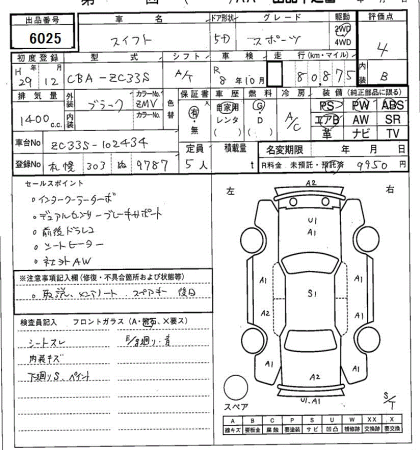 出品番号 車名 ドア形状 グレード 駆動 評価点
6025 スイフト 5D スポーツ 2WD 4WD 4
初度登録 型式 シフト 車検 走行(km・マイル) 内装
H29 12 CBA-ZC33S A/T R 8年10月 80,875 B
排気量 外装色 カラーNo. 内装色 カラーNo. 色替 保証書 車歴 燃料 冷房 装備(純正部品に限る)
1400 c.c. ブラック ZMV 有・無 自家用 レンタ G D A/C PS PW ABS
エアB AW SR
革 ナビ TV
車台No ZC33S-102434 定員 積載量 名変期限 年 月 日
登録No 札幌 303 ぬ 9787 5人 t R料金 未預託・預託済 9950 円
セールスポイント
○インタークーラーターボ
○デュアルセンサーブレーキサポート
○前後ドラレコ
○シートヒーター
○社外AW
※注意事項記入欄(修復・不具合箇所および状態等)
検査員記入 フロントガラス(A・飛石・X要ス)
シートスレ
内装キズ
下廻りS、ペイント
左 右
A2
U1
A1
A1
A1
S1
A1
A1
A2
A1
スペア
U1.A1
S/T
A B C P S U W X XX
線キズ 要板金 腐蝕 要塗装 サビ 凹凸 補修跡 交換跡 要交換